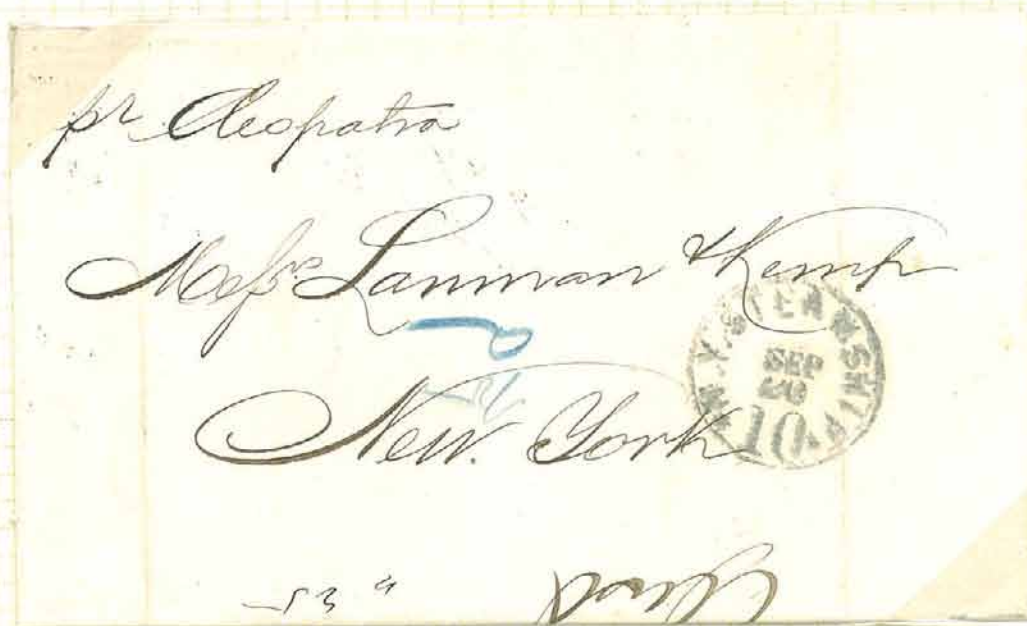 pr Cleopatra
Messrs Lanman & Kemp
New. York
N.Y. STEAMSHIP
SEP
10